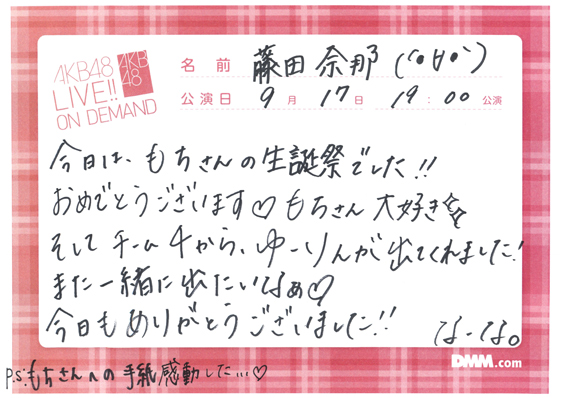 AKB48
LIVE!!
ON DEMAND
AKB
48
名前 藤田奈那 (˙∀˙)
公演日 9月17日 19:00公演
今日は、もちさんの生誕祭でした!!
おめでとうございます♡もちさん大好き
そしてチーム4から、ゆーりんが出てくれました!
また一緒に出たいなぁ♡
今日もありがとうございました!! なーな。
DMM.com
P.S.もちさんへの手紙感動した…♡